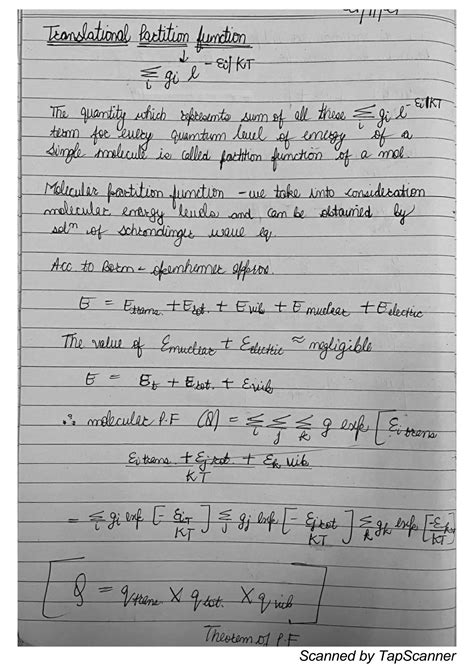 Translational Partition function
↓
Σi gi e^-εi/KT
The quantity which represents sum of all these Σi gi e^-εi/KT
term for every quantum level of energy of a
single molecule is called partition function of a mol.
Molecular partition function - we take into consideration
molecular energy levels and can be obtained by
solⁿ of schrondinger wave eq.
Acc to Born - openhemer approx.
E = Etrans. + Erot. + Evib + Enuclear + Eelectric
The value of Enuclear + Eelectric ≈ negligible
E = Et + Erot. + Evib
∴ molecular P.F (Q) = Σi Σj Σk g exp [εi trans
εi trans. + εj rot. + εk vib
KT
= Σi gi exp [-εiT/KT] Σj gj exp [-εj rot/KT] Σk gk exp [-εk/KT]
[Q = qtrans × qrot. × qvib]
Theorem of P.F
Scanned by TapScanner